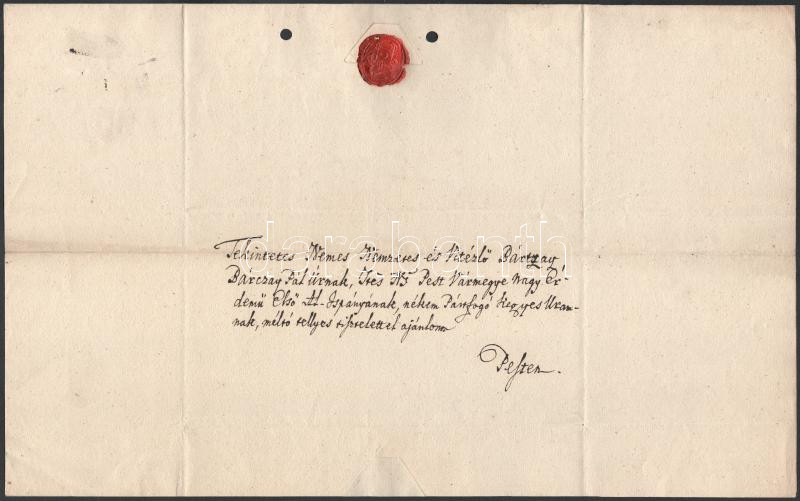 darabanth
Tekintetes Nemes Nemzetes és Vitézlő Bárczay
Bárczay Pál úrnak, Ttes Ns Pest Vármegye Nagy Ér-
demű Első Al-Ispányának, nékem Pártfogó Kegyes Uram-
nak, méltó tellyes tisztelettel ajánlom
Pesten.